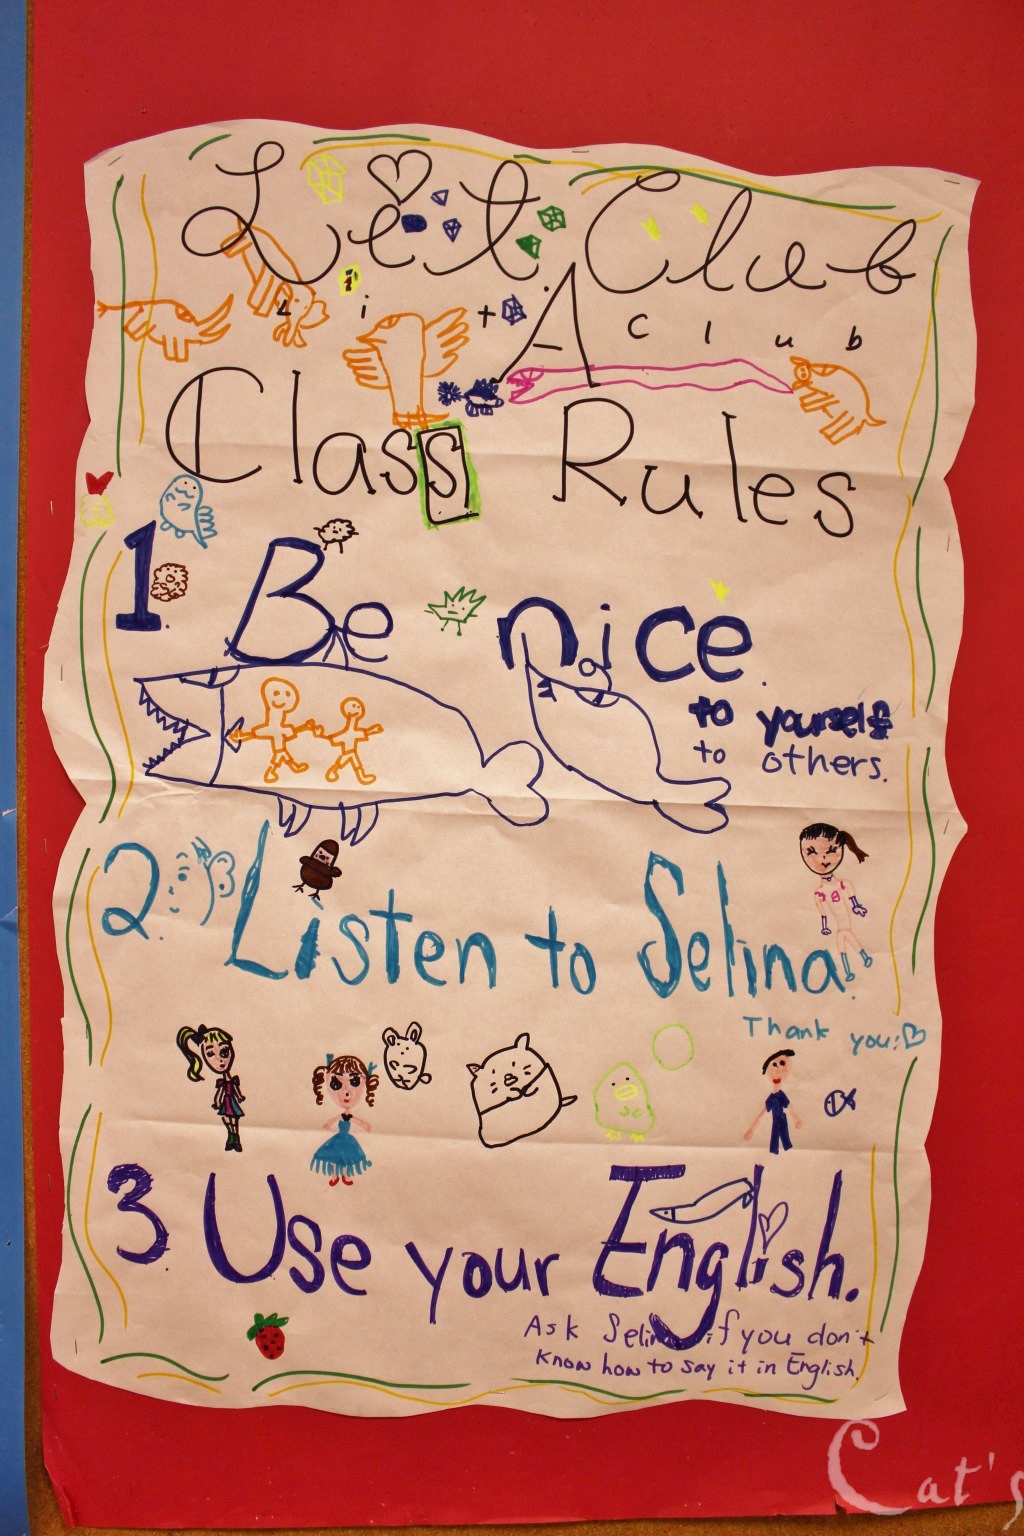 Lit. Club
Lit A Club
Class Rules
1. Be nice.
to yourself
to others.
2. Listen to Selina.
Thank you!
3. Use your English.
Ask Selina if you don't
know how to say it in English.
Cat's